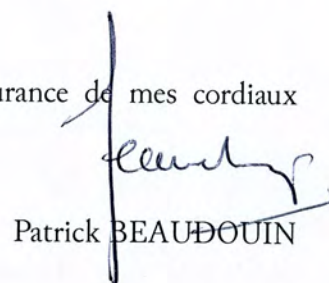 de mes cordiaux
Patrick BEAUDOUIN